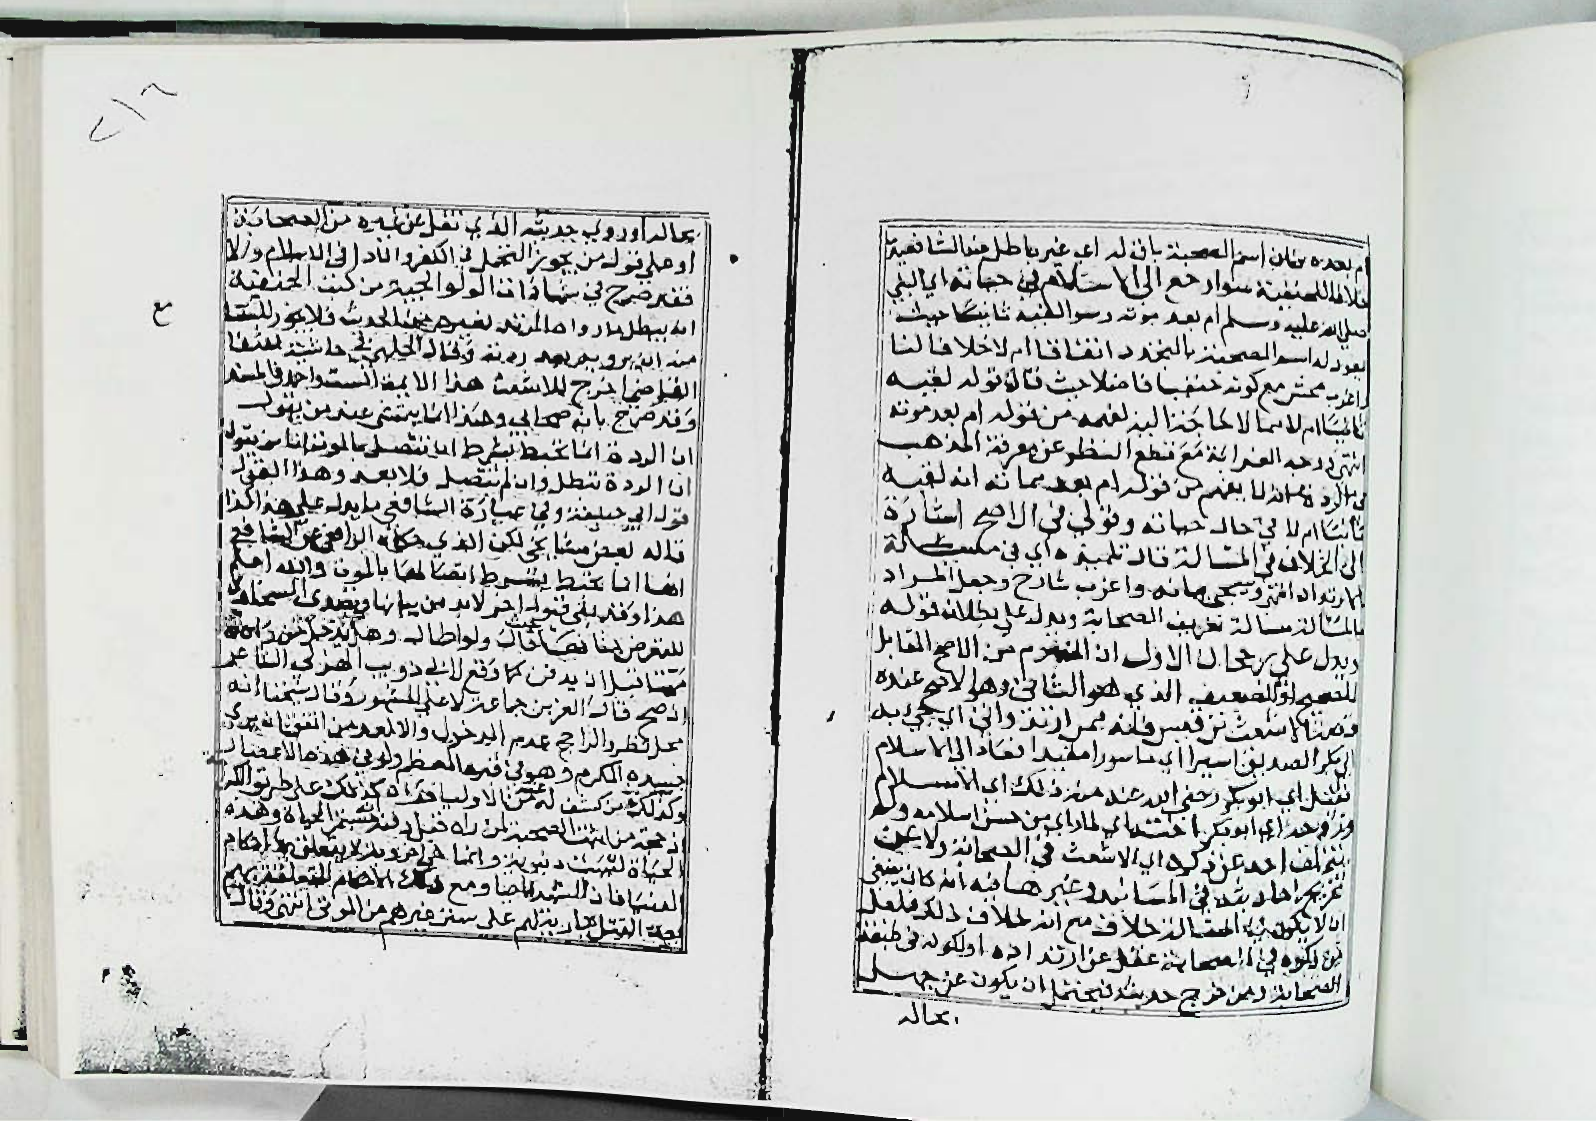 ام بعده فان اسم الصحبة باق له اي غير باطل عند الشافعية
خلافا للحنفية سوا رجع الى الاسلام في حياته اي النبي
صلى الله عليه وسلم ام بعد موته وسوا لقيه ثانيا حيث
يعود له اسم الصحبة بالتجدد اتفاقا ام لا خلافا لنا
واغرب محش مع كونه حنفيا فاضلا حيث قال قوله لقيه
ثانيا ام لا مما لا حاجة اليه لفهمه من قوله ام بعد موته
انتهى وجه الغرابة مع قطع النظر عن معرفة المذهب
في الردة انه لا يفهم من قوله ام بعد مماته انه لقيه
ثانيا ام لا في حال حياته وقولي في الاصح اشارة
الى الخلاف في المسالة قال تلميذه اي في مسالة
الارتداد انتهى وسيجي بيانه واغرب شارح وجعل المراد
بالمسالة مسالة تعريف الصحابة ويدل على بطلانه قوله
ويدل على رجحان الاول ان المفهوم من الاصح المقابل
للصحيح او للضعيف الذي هو الثاني وهو الاصح عنده
قصة الاشعث بن قيس فانه ممن ارتد واتي اي جيء به
الى ابي بكر الصديق اسيرا اي ماسورا مقيدا فعاد الى الاسلام
فقبل اي ابو بكر رضي الله عنه منه ذلك اي الاسلام
وزوجه اي ابو بكر اخته اي لما راي من حسن اسلامه ولم
يتخلف احد عن ذكره اي الاشعث في الصحابة ولا عن
تخريج احاديثه في المسانيد وغيرها فيه انه كان ينبغي
ان لا يكون في المسالة خلاف مع ان خلاف ذلك فلعل
من ذكره في الصحابة غفل عن ارتداده او لكونه في طبقة
الصحابة ومن خرج حديثه فيحتمل ان يكون عن جهل
بحاله
٢١٦
بحاله او روى حديثه الذي نقل عن غيره من الصحابة
او على قول من يجوز التحمل في الكفر والاداء في الاسلام والا
فقد صرح في شهادات الولوالجية من كتب الحنفية
انه يبطل ما رواه المرتد لغيره من الحديث فلا يجوز للسامع
منه ان يرويه بعد ردته وقال الحلبي في حاشية الشفا
ايضا خرج للاشعث هذا الايمة الستة واحمد في المسند
وقد صرح بانه صحابي وهذا انما يتمشى عند من يقول
ان الردة انما تحبط بشرط ان تتصل بالموت اما من يقول
ان الردة تبطل وان لم تتصل فلا يعد وهذا القول
قول ابي حنيفة وفي عبارة الشافعي ما يدل على هذا كذا
قاله بعض مشايخي لكن الذي حكاه الرافعي عن الشافعي
انها انما تحبط بشرط اتصالها بالموت والله اعلم
هذا وقد بقي قيود اخر لابد من بيانها وتصدى السخاوي
للتعرض لها فقال ولو اطاله وهل يدخل من راه
ميتا قبل ان يدفن كما وقع لابي ذويب الهذلي الشاعر
ان صح قال العز بن جماعة لا على المشهور وقال شيخنا انه
محل نظر والراجح عدم الدخول والا لعد من اتفق انه يرى
جسده المكرم وهو في قبره المعظم ولو في هذه الاعصار
وكذلك من كشف له عنه من الاوليا فراه كذلك على طريق الكرامة
اذ حجة من اثبت الصحبة لمن راه قبل دفنه انه مستمر الحياة وهذه
الحياة ليست دنيوية وانما هي اخروية لا يتعلق بها احكام
الدنيا فان الشهدا احيا ومع ذلك الاحكام المتعلقة بهم
بعد القتل جارية لهم على سنن غيرهم من الموتى انتهى وقال
ع